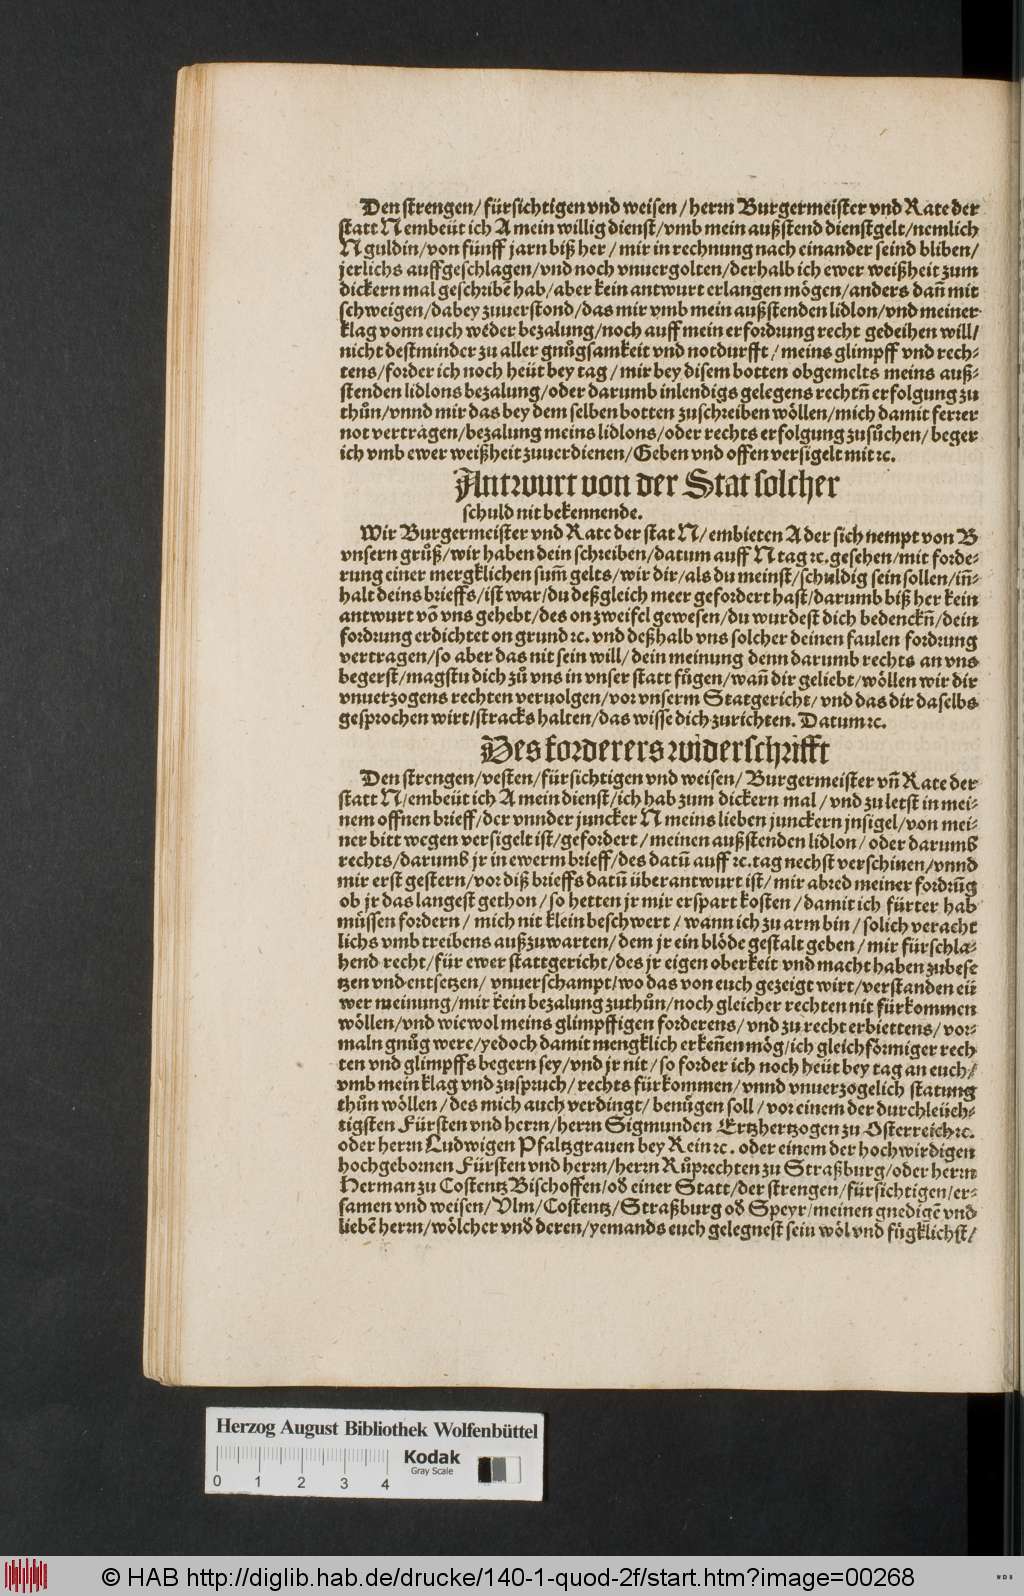 Den strengen/ fürsichtigen vnd weisen/ herrn Burgermeister vnd Rate der
statt N embeüt ich A mein willig dienst/ vmb mein außstend dienstgelt/ nemlich
N guldin/ von fünff jarn biß her/ mir in rechnung nach einander seind bliben/
jerlichs auffgeschlagen/ vnd noch vnuergolten/ derhalb ich ewer weißheit zum
dickern mal geschribẽ hab/ aber kein antwurt erlangen mögen/ anders dañ mit
schweigen/ dabey zuuerstond/ das mir vmb mein außstenden lidlon/ vnd meiner
klag vonn euch weder bezalung/ noch auff mein erfordrung recht gedeihen will/
nicht destminder zu aller gnůgsamkeit vnd notdurfft/ meins glimpff vnd rech-
tens/ forder ich noch heüt bey tag/ mir bey disem botten obgemelts meins auß-
stenden lidlons bezalung/ oder darumb inlendigs gelegens rechtñ erfolgung zu
thůn/ vnnd mir das bey dem selben botten zuschreiben wöllen/ mich damit ferrer
not vertragen/ bezalung meins lidlons/ oder rechts erfolgung zusůchen/ beger
ich vmb ewer weißheit zuuerdienen/ Geben vnd offen versigelt mit ꝛc.
Antwurt von der Stat solcher
schuld nit bekennende.
Wir Burgermeister vnd Rate der stat N/ embieten A der sich nempt von B
vnsern grůß/ wir haben dein schreiben/ datum auff N tag ꝛc. gesehen/ mit forde-
rung einer mergklichen sum̃ gelts/ wir dir/ als du meinst/ schuldig sein sollen/ iñ-
halt deins brieffs/ ist war/ du deßgleich meer gefordert hast/ darumb biß her kein
antwurt võ vns gehebt/ des on zweifel gewesen/ du wurdest dich bedenckñ/ dein
fordrung erdichtet on grund ꝛc. vnd deßhalb vns solcher deinen faulen fordrung
vertragen/ so aber das nit sein will/ dein meinung denn darumb rechts an vns
begerst/ magstu dich zů vns in vnser statt fügen/ wañ dir geliebt/ wöllen wir dir
vnuerzogens rechten veruolgen/ vor vnserm Statgericht/ vnd das dir daselbs
gesprochen wirt/ stracks halten/ das wisse dich zurichten. Datum ꝛc.
Des forderers widerschrifft
Den strengen/ vesten/ fürsichtigen vnd weisen/ Burgermeister vñ Rate der
statt N/ embeüt ich A mein dienst/ ich hab zum dickern mal/ vnd zu letst in mei-
nem offnen brieff/ der vnnder juncker N meins lieben junckern jnsigel/ von mei-
ner bitt wegen versigelt ist/ gefordert/ meinen außstenden lidlon/ oder darumb
rechts/ darumb jr in ewerm brieff/ des datũ auff ꝛc. tag nechst verschinen/ vnnd
mir erst gestern/ vor diß brieffs datũ überantwurt ist/ mir abred meiner fordrũg
ob jr das langest gethon/ so hetten jr mir erspart kosten/ damit ich fürter hab
müssen fordern/ mich nit klein beschwert/ wann ich zu arm bin/ solich veracht
lichs vmbtreibens außzuwarten/ dem jr ein blöde gestalt geben/ mir fürschla-
hend recht/ für ewer stattgericht/ des jr eigen oberkeit vnd macht haben zubese
tzen vnd entsetzen/ vnuerschampt/ wo das von euch gezeigt wirt/ verstanden eü
wer meinung/ mir kein bezalung zuthůn/ noch gleicher rechten nit fürkommen
wöllen/ vnd wiewol meins glimpffigen forderens/ vnd zu recht erbiettens/ vor-
maln gnůg were/ yedoch damit mengklich erkeñen mög/ ich gleichförmiger rech
ten vnd glimpffs begern sey/ vnd jr nit/ so forder ich noch heüt bey tag an euch/
vmb mein klag vnd zuspruch/ rechts fürkommen/ vnnd vnuerzogelich statung
thůn wöllen/ des mich auch verdingt/ benügen soll/ vor einem der durchleüch-
tigsten Fürsten vnd herrn/ herrn Sigmunden Ertzhertzogen zu Osterreich ꝛc.
oder herrn Ludwigen Pfaltzgrauen bey Rein ꝛc. oder einem der hochwirdigen
hochgebornen Fürsten vnd herrn/ herrn Růprechten zu Straßburg/ oder herrn
Herman zu Costentz Bischoffen/ od einer Statt/ der strengen/ fürsichtigen/ er-
samen vnd weisen/ Vlm/ Costentz/ Straßburg od Speyr/ meinen gnedigẽ vnd
liebẽ herrn/ wölcher vnd deren/ yemands euch gelegnest sein wöl vnd fügklichst/
Herzog August Bibliothek Wolfenbüttel
Kodak
Gray Scale
0 1 2 3 4
© HAB http://diglib.hab.de/drucke/140-1-quod-2f/start.htm?image=00268